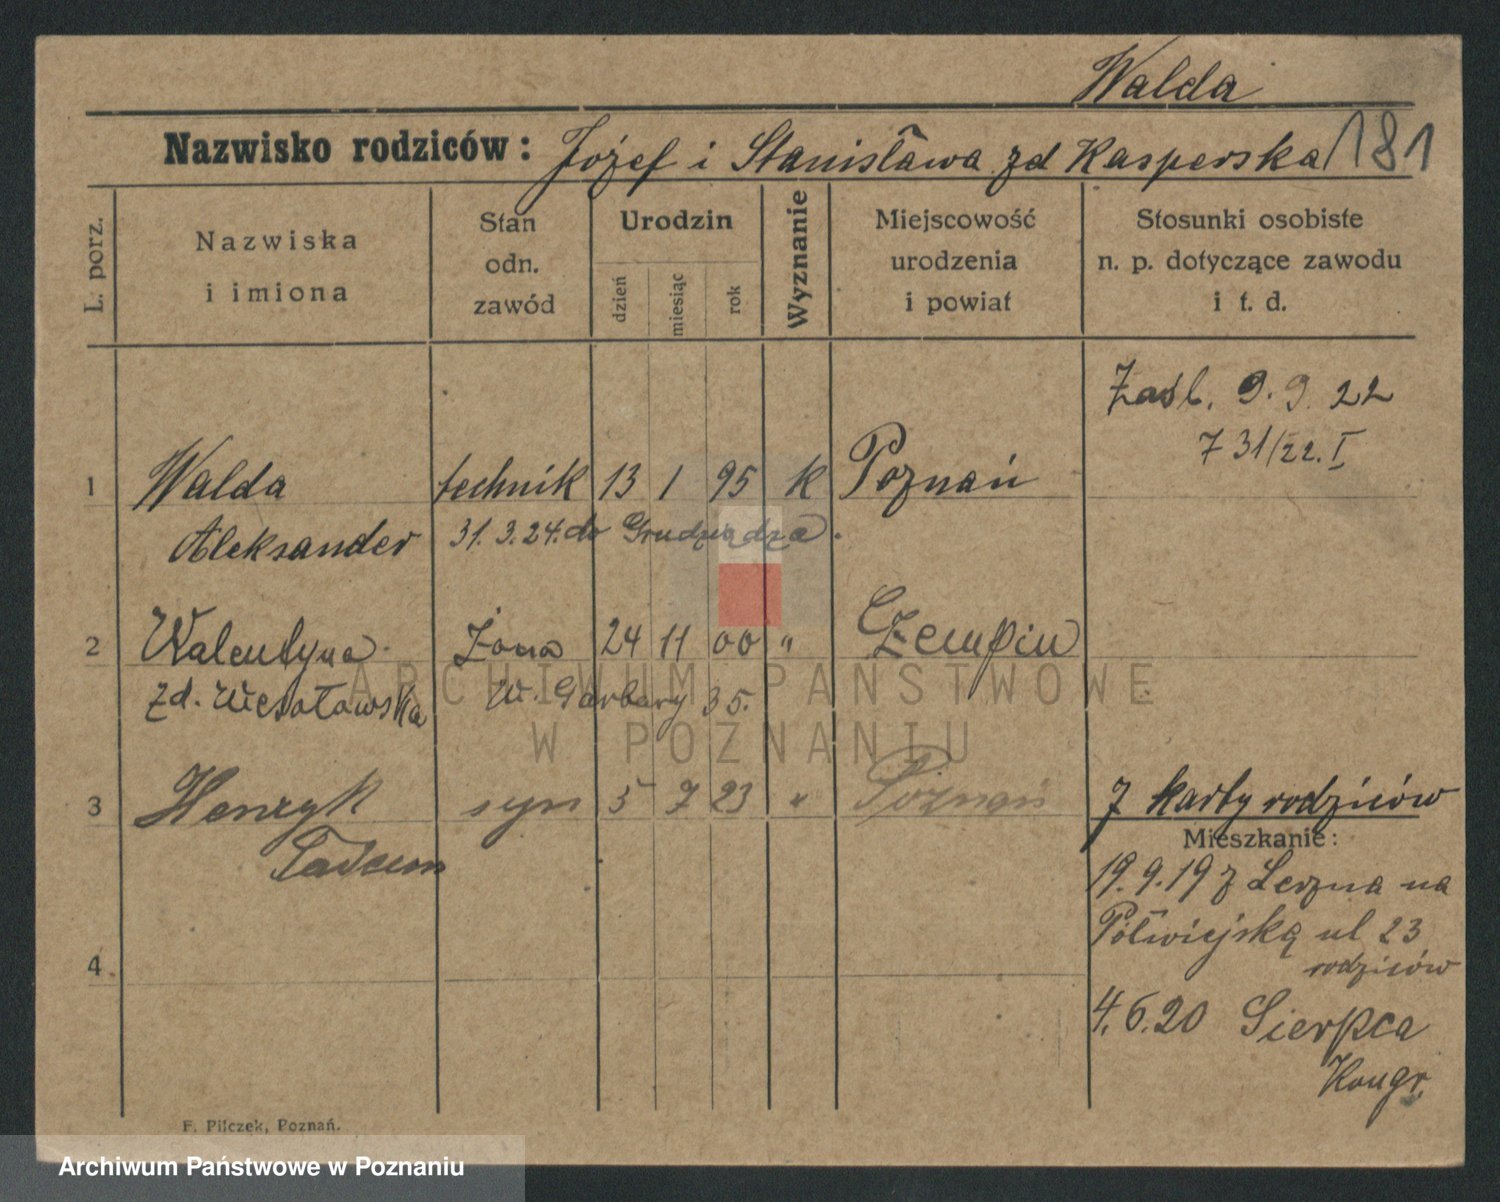 Walda
Nazwisko rodziców: Józef i Stanisława zd Kasperska 181
L. porz.
Nazwiska i imiona
Stan odn. zawód
Urodzin
dzień
miesiąc
rok
Wyznanie
Miejscowość urodzenia i powiat
Stosunki osobiste n. p. dotyczące zawodu i t. d.
Zaśl. 9. 9. 22
731/22. I
1 Walda technik 13 1 95 k Poznań
Aleksander 31. 3. 24. do Grudziądza.
2 Walentyna żona 24 11 00 " Czempiń
zd. Wesołowska W. Garbary 35.
3 Henryk syn 5 7 23 " Poznań
z karty rodziców
Mieszkanie:
19. 9. 19 z Leszna na
Półwiejską ul 23
rodziców
4
4. 6. 20 Sierpca
Kongr.
F. Pilczek, Poznań.
ARCHIWUM PAŃSTWOWE
W POZNANIU
Archiwum Państwowe w Poznaniu